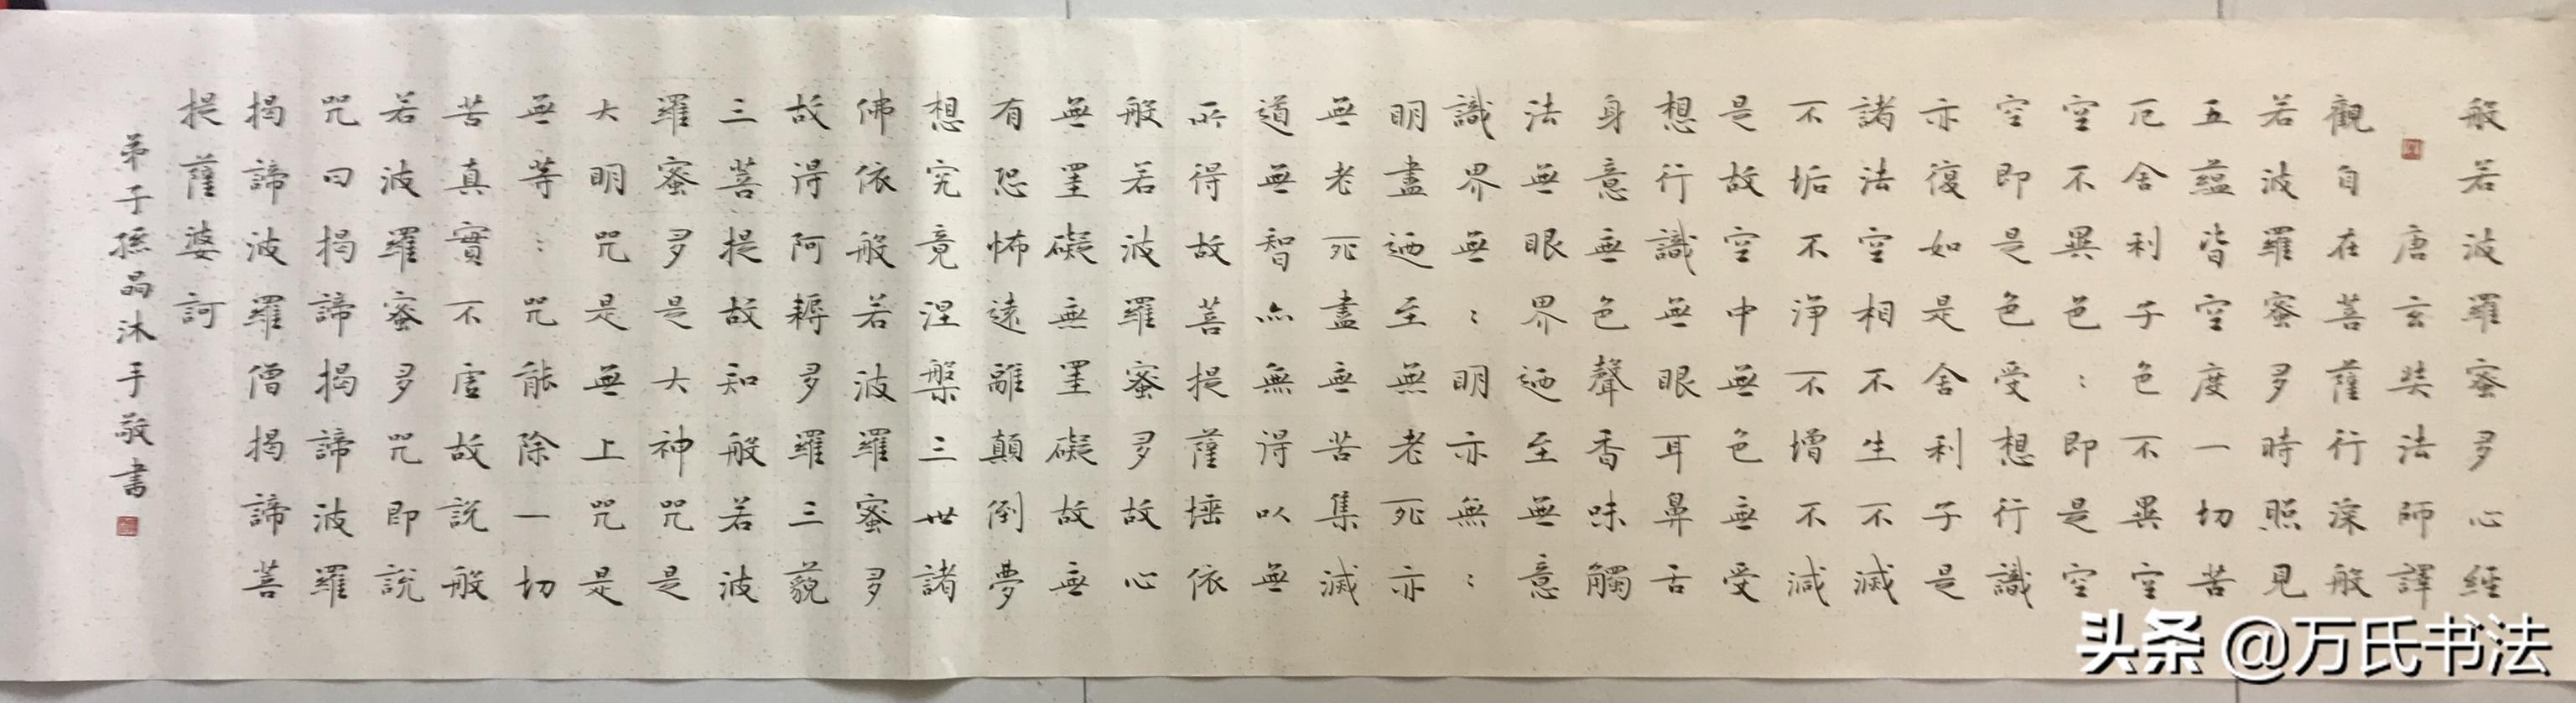 般若波羅蜜多心經
唐玄奘法師譯
觀自在菩薩行深般
若波羅蜜多時照見
五蘊皆空度一切苦
厄舍利子色不異空
空不異色：即是空
空即是色受想行識
亦復如是舍利子是
諸法空相不生不滅
不垢不淨不增不減
是故空中無色無受
想行識無眼耳鼻舌
身意無色聲香味觸
法無眼界迺至無意
識界無：明亦無：
明盡迺至無老死亦
無老死盡無苦集滅
道無智亦無得以無
所得故菩提薩埵依
般若波羅蜜多故心
無罣礙無罣礙故無
有恐怖遠離顛倒夢
想究竟涅槃三世諸
佛依般若波羅蜜多
故得阿耨多羅三藐
三菩提故知般若波
羅蜜多是大神咒是
大明咒是無上咒是
無等：咒能除一切
苦真實不虛故說般
若波羅蜜多咒即說
咒曰揭諦揭諦波羅
揭諦波羅僧揭諦菩
提薩婆訶
弟子孫晶沐手敬書
头条 @万氏书法